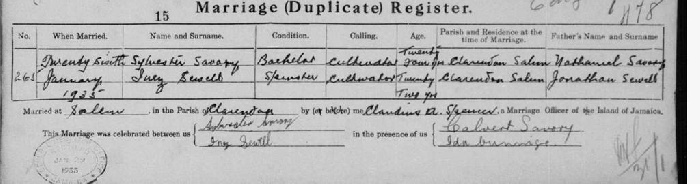 15
Marriage (Duplicate) Register.
1178
No. When Married. Name and Surname Condition. Calling. Age. Parish and Residence at the time of Marriage. Father's Name and Surname
Twenty Sixth Sylvester Savory Bachelor Cultivator Twenty four yrs Clarendon Salem Nathaniel Savory
263 January Inez Sewell Spinster Cultivator Twenty Clarendon Salem Jonathan Sewell
1935 Two yrs
Married at Salem in the Parish of Clarendon by (or before) me Claudius A. Spencer, a Marriage Officer of the Island of Jamaica.
This Marriage was celebrated between us { Sylvester Savory in the presence of us { Calvert Savory
Inez Sewell Ida
1935